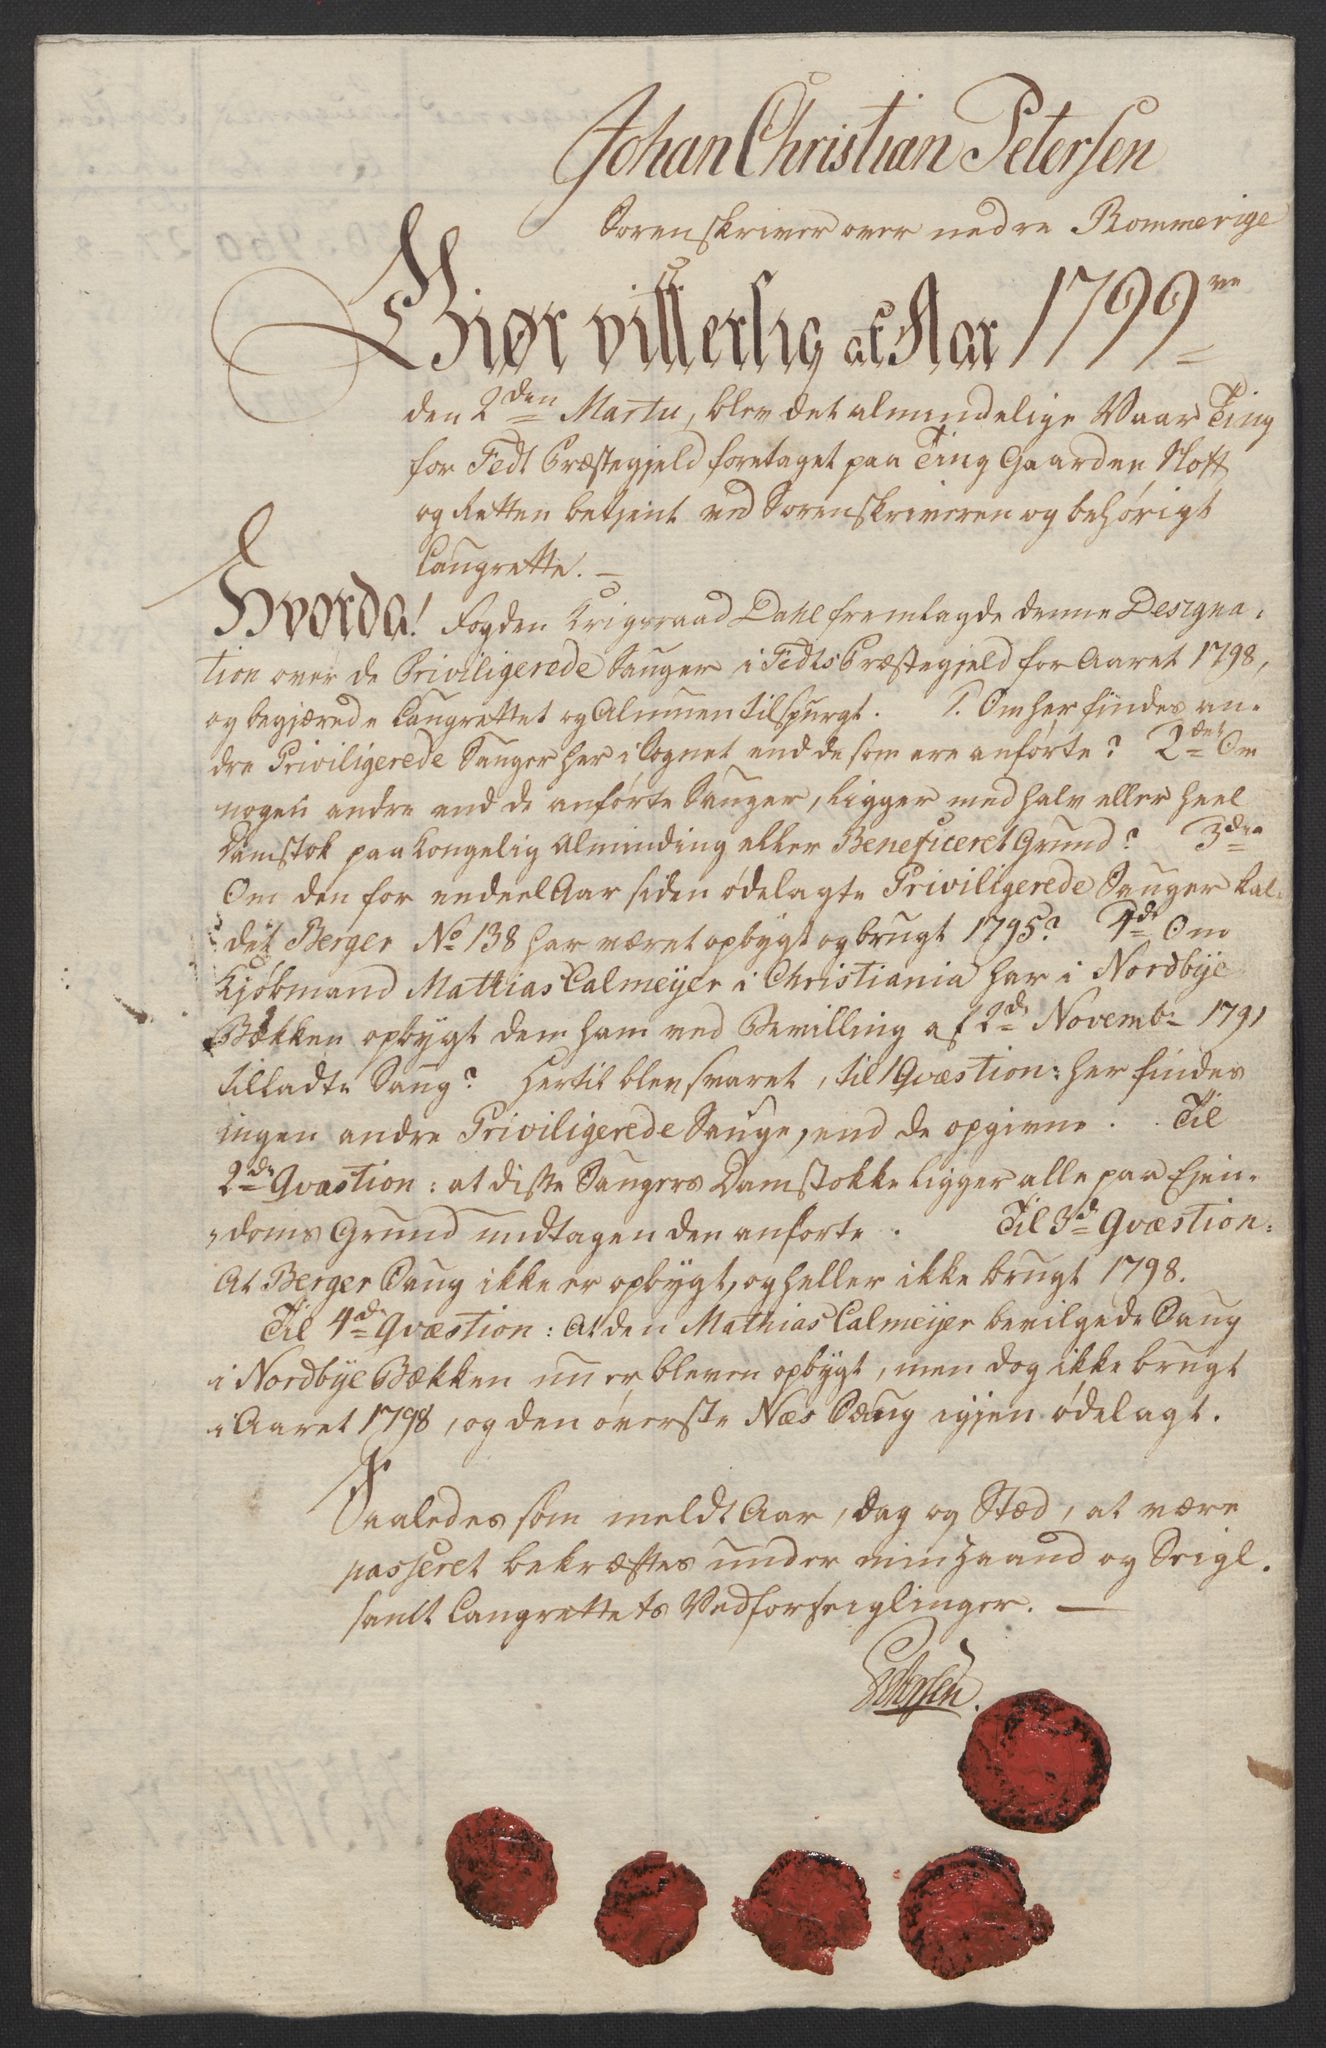 Johan Christian Petersen
Sorenskriver over nedre Rommerige
Giør vitterlig at Aar 1799ve
den 2den Martii, blev det almindelige Vaar Ting
for Fedt Præstegjeld foretaget paa Ting Gaarden Noft
og Retten betjent ved Sorenskriveren og behørigt
Laugrette. —
Hvorda! Fogden Krigsraad Dahl fremlagde denne Designa-
tion over de Priviligerede Sauger i Fedts Præstegjeld for Aaret 1798,
og begjærede Laugrettet og Almuen tilspurgt. 1. Om her findes an-
dre Priviligerede Sauger her i Sognet end de som ere anførte? 2det Om
nogen andre end de anførte Sauger, ligger med halv eller heel
Damstok paa Kongelig Alminding eller Beneficeret Grund? 3die
Om den for endeel Aar siden ødelagte Priviligerede Sauger kal-
det Berger No 138 har været opbygt og brugt 1795? 4de Om
Kjøbmand Mathias Calmeyer i Christiania har i Nordbye
Bækken opbygt dem ham ved Bevilling af 2de Novembr 1791
tilladte Saug? Hertil blev svaret, til 1 Qvæstion: her findes
ingen andre Priviligerede Sauge, end de opgivne. Til
2de Qvæstion: at disse Saugers Damstokke ligger alle paa Ejen-
doms Grund undtagen den anførte. Til 3d Qvæstion:
At Berger Saug ikke er opbygt, og heller ikke brugt 1798.
Til 4de Qvæstion: At den Mathias Calmeijer bevilgede Saug
i Nordbye Bækken nu er bleven opbygt, men dog ikke brugt
i Aaret 1798, og den øverste Næs Saug igjen ødelagt.
Saaledes som meldt Aar, Dag og Stæd, at være
passeret bekræftes under min Haand og Seigl.
samt Laugrettets Vedforseiglinger. —
Petersen.